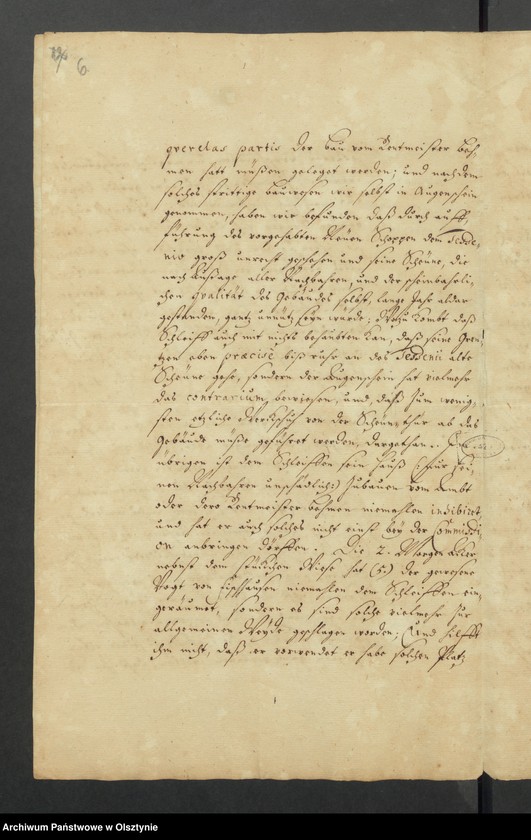 196 6
querelas partis der bau vom Rentmeister Böh-
men hatt müßen geleget werden; und nachdem
solches strittige bauwesen wir selbst in Augenschein
genommen, haben wir befunden daß durch auff-
führung des vorgehabten Neuen Schoppen dem Tedde-
nio groß unrecht geschehen und seine Scheune, die
nach Außage aller Nachbahren, und der scheinbahrli-
chen qualität des Gebäudes selbst, lange Jahr aldar
gestanden, gantz unnütz seyn würde; Dazu kombt daß
Schleiff auch mit nichts behaubten kan, daß seine Gren-
tzen eben præcisè biß nahe an des Teddenii alte
Scheune gehe, sondern der Augenschein hat vielmehr
das contrarium bewiesen, und, daß zum wenig-
sten etzliche Werckschuh von der Scheunthür ab das
Gebäude müße geführet werden, dargethan. Im
übrigen ist dem Schleiffen sein Hauß (: für sei-
nen Nachbahren unschädlich :) zubauen vom Ambt
oder dero Rentmeister Böhmen niemahlen inhibiret
und hat er auch solches nicht einst bey der Commissi-
on anbringen dörffen. Die 2. Morgen Acker
nebenst dem stückchen Wiese hat (5.) der gewesene
Vogt von niemahlen dem Schleiffen ein-
geraumet, sondern es sind solche vielmehr zur
allgemeinen Weyde geschlagen worden; Und hilfft
ihm nicht, daß er vorwendet er habe solchen Platz
Archiwum Państwowe w Olsztynie